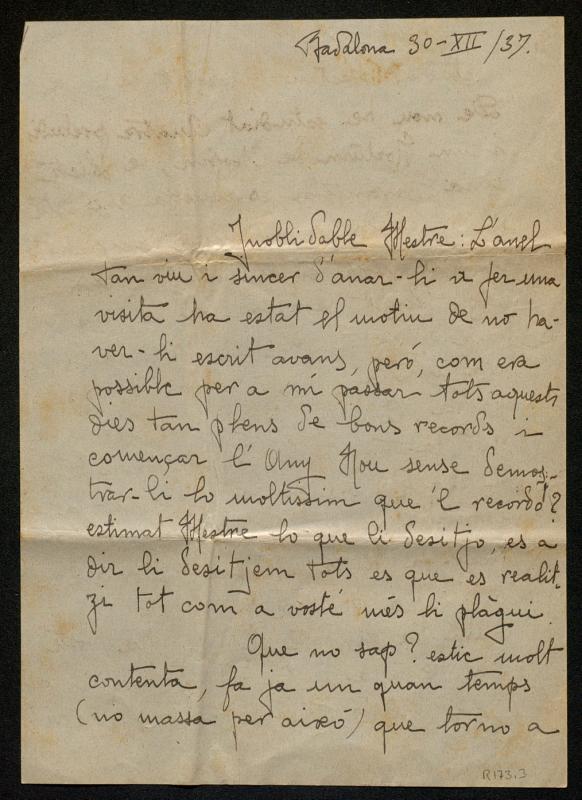 Badalona 30-XII/37.
Inoblidable Mestre: L'anel
tan viu i sincer d'anar-hi a fer una
visita ha estat el motiu de no ha-
ver-li escrit avans, però, com era
possible per a mi passar tots aquests
dies tan plens de bons records i
començar l'Any Nou sense demos-
trar-li lo moltissim que'l recordo?
estimat Mestre lo que li desitjo, es a
dir li desitjem tots es que es realit-
zi tot com a vosté més li plàgui.
Que no sap? estic molt
contenta, fa ja un quan temps
(no massa per aixó) que torno a
R173.3